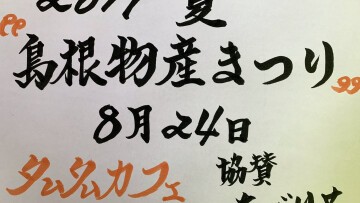 夏
島根物産まつり
8月24日
タムタムカフェ
協賛